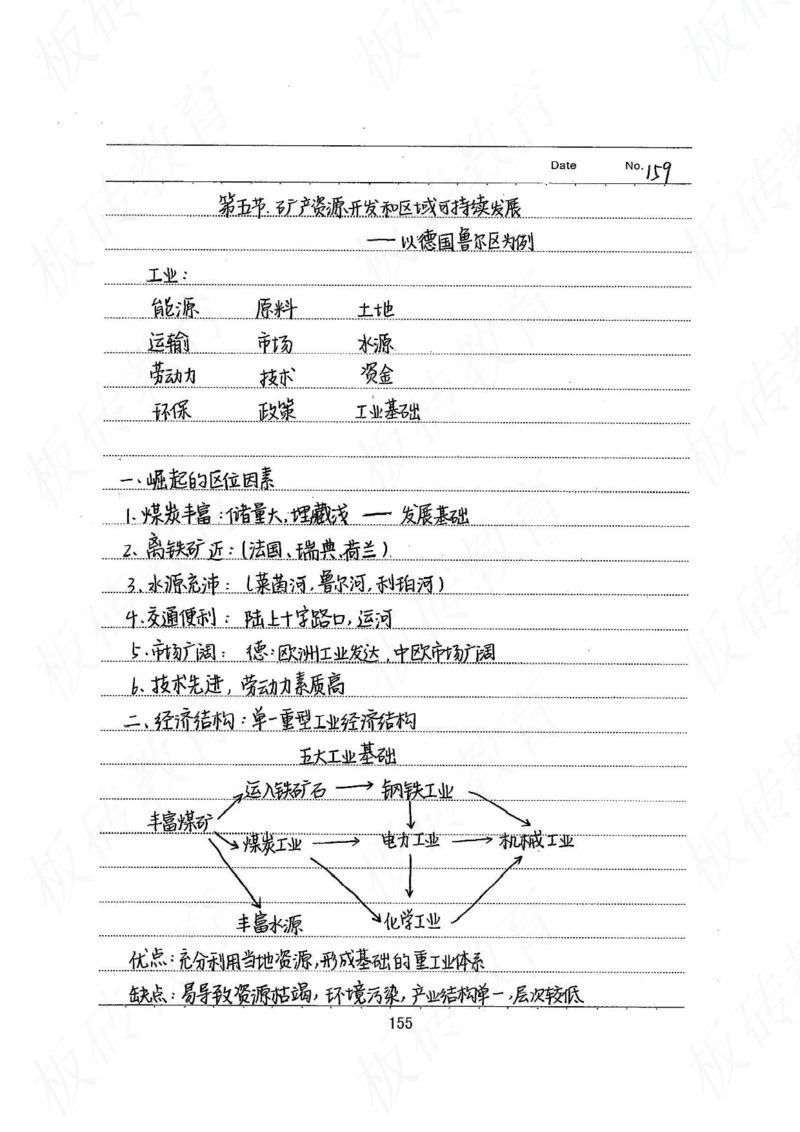 Date No. 159
第五节.矿产资源开发和区域可持续发展
——以德国鲁尔区为例
工业:
能源 原料 土地
运输 市场 水源
劳动力 技术 资金
环保 政策 工业基础
一、崛起的区位因素
1.煤炭丰富:储量大,埋藏浅 —— 发展基础
2、离铁矿近:(法国、瑞典、荷兰)
3、水源充沛:(莱茵河,鲁尔河,利珀河)
4、交通便利: 陆上十字路口,运河
5、市场广阔: 德:欧洲工业发达,中欧市场广阔
6、技术先进,劳动力素质高
二、经济结构:单一重型工业经济结构
五大工业基础
运入铁矿石 → 钢铁工业
丰富煤矿
煤炭工业 → 电力工业 → 机械工业
丰富水源 化学工业
优点:充分利用当地资源,形成基础的重工业体系
缺点:易导致资源枯竭,环境污染,产业结构单一,层次较低
155
板砖教育